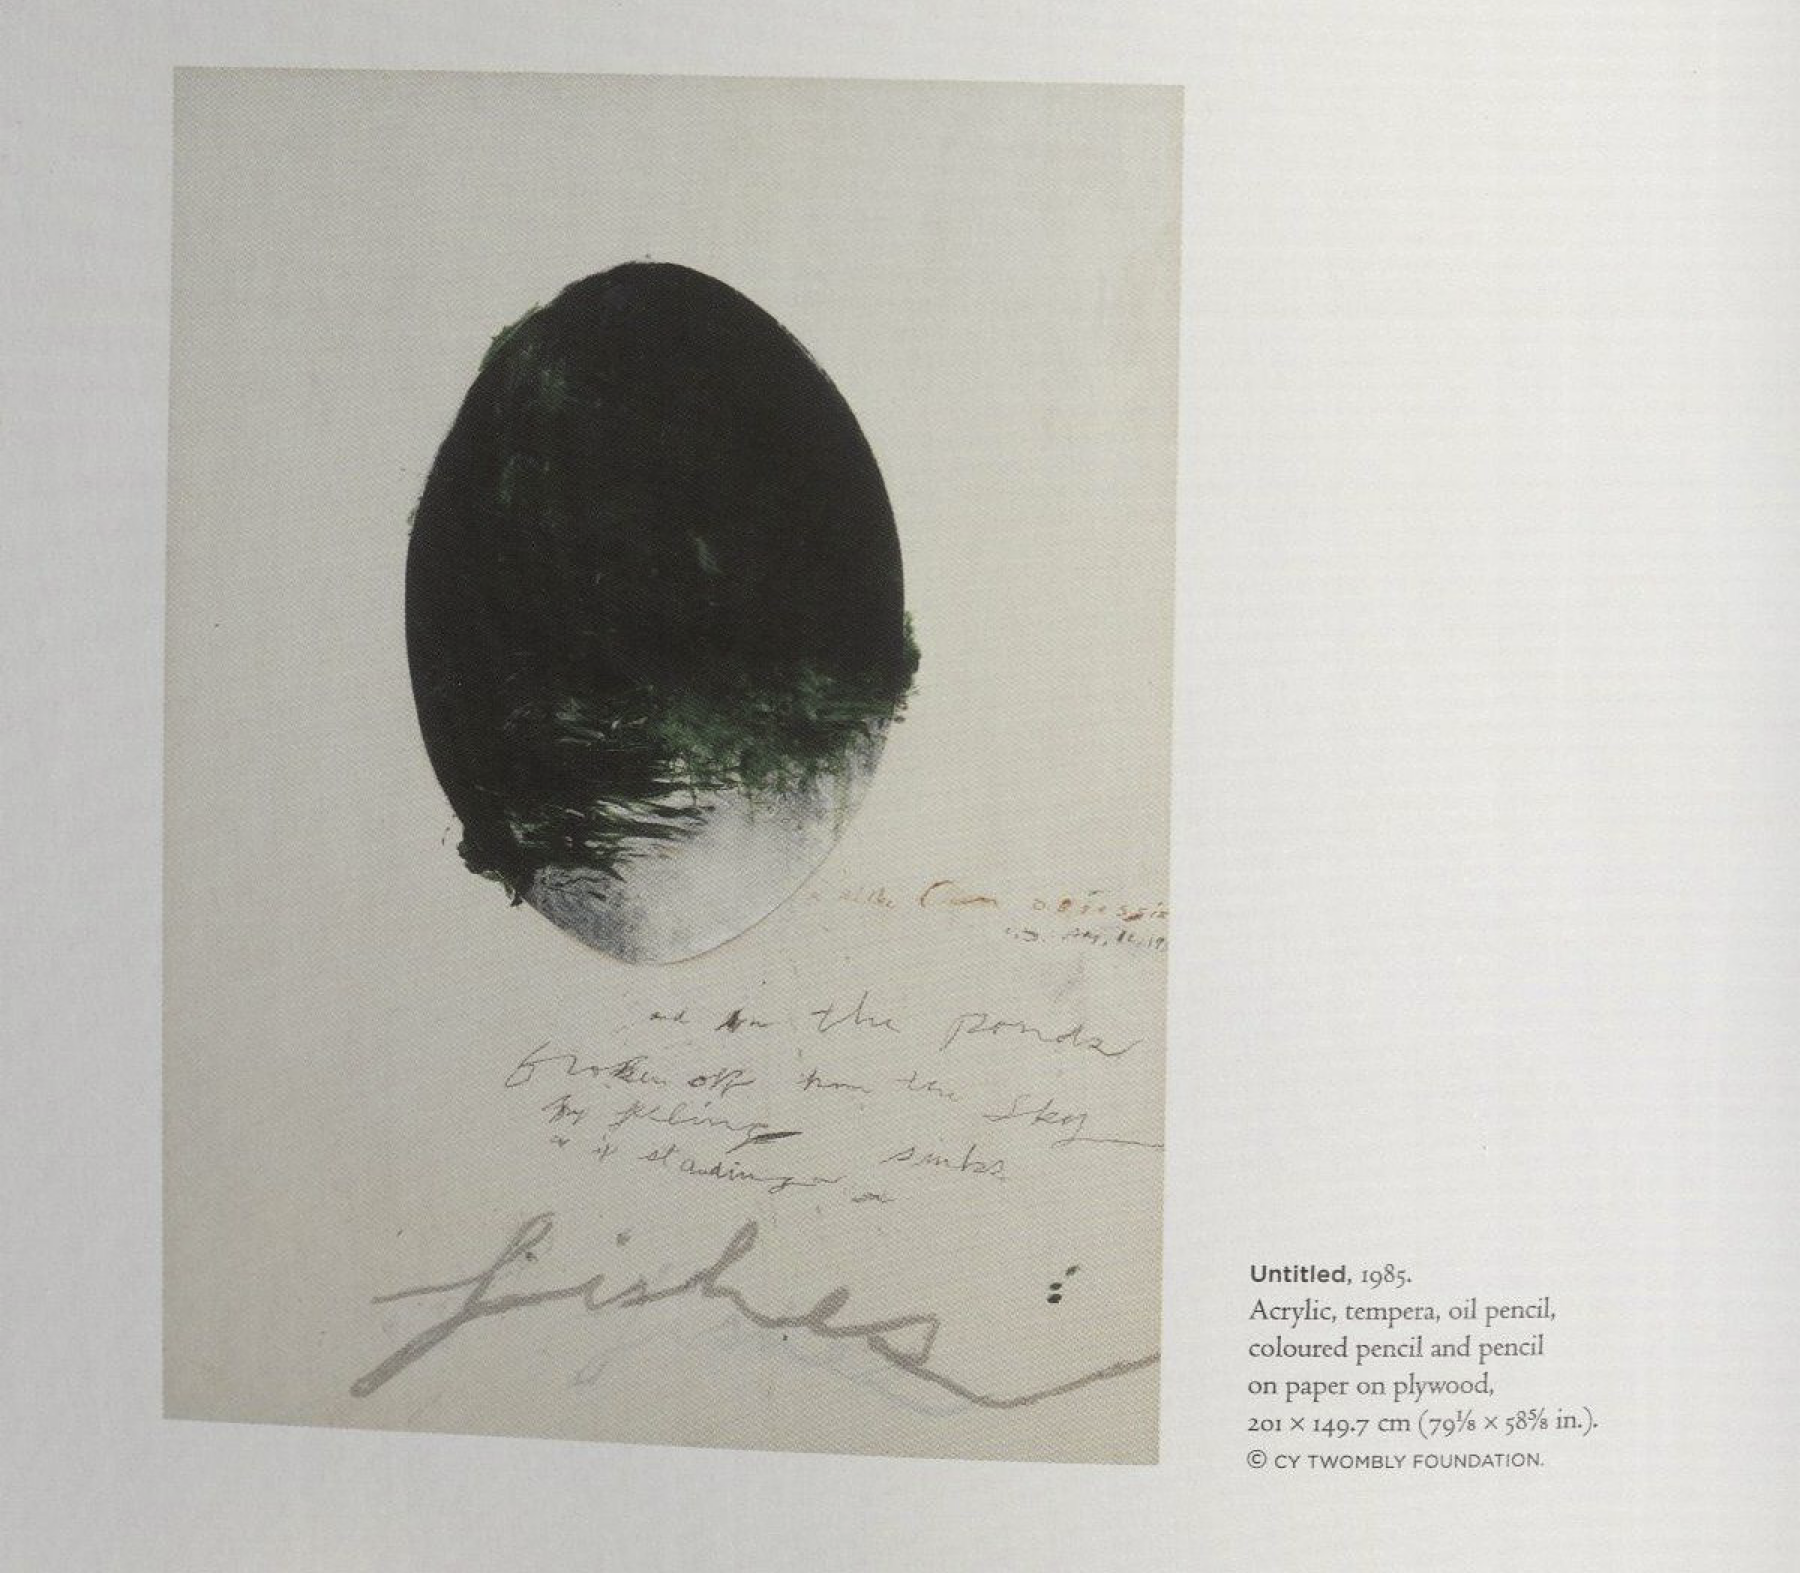 and in the ponds
broken off from the sky
my feeling sinks
as if standing on
fishes
Untitled, 1985.
Acrylic, tempera, oil pencil,
coloured pencil and pencil
on paper on plywood,
201 × 149.7 cm (79⅛ × 58⅝ in.).
© CY TWOMBLY FOUNDATION.